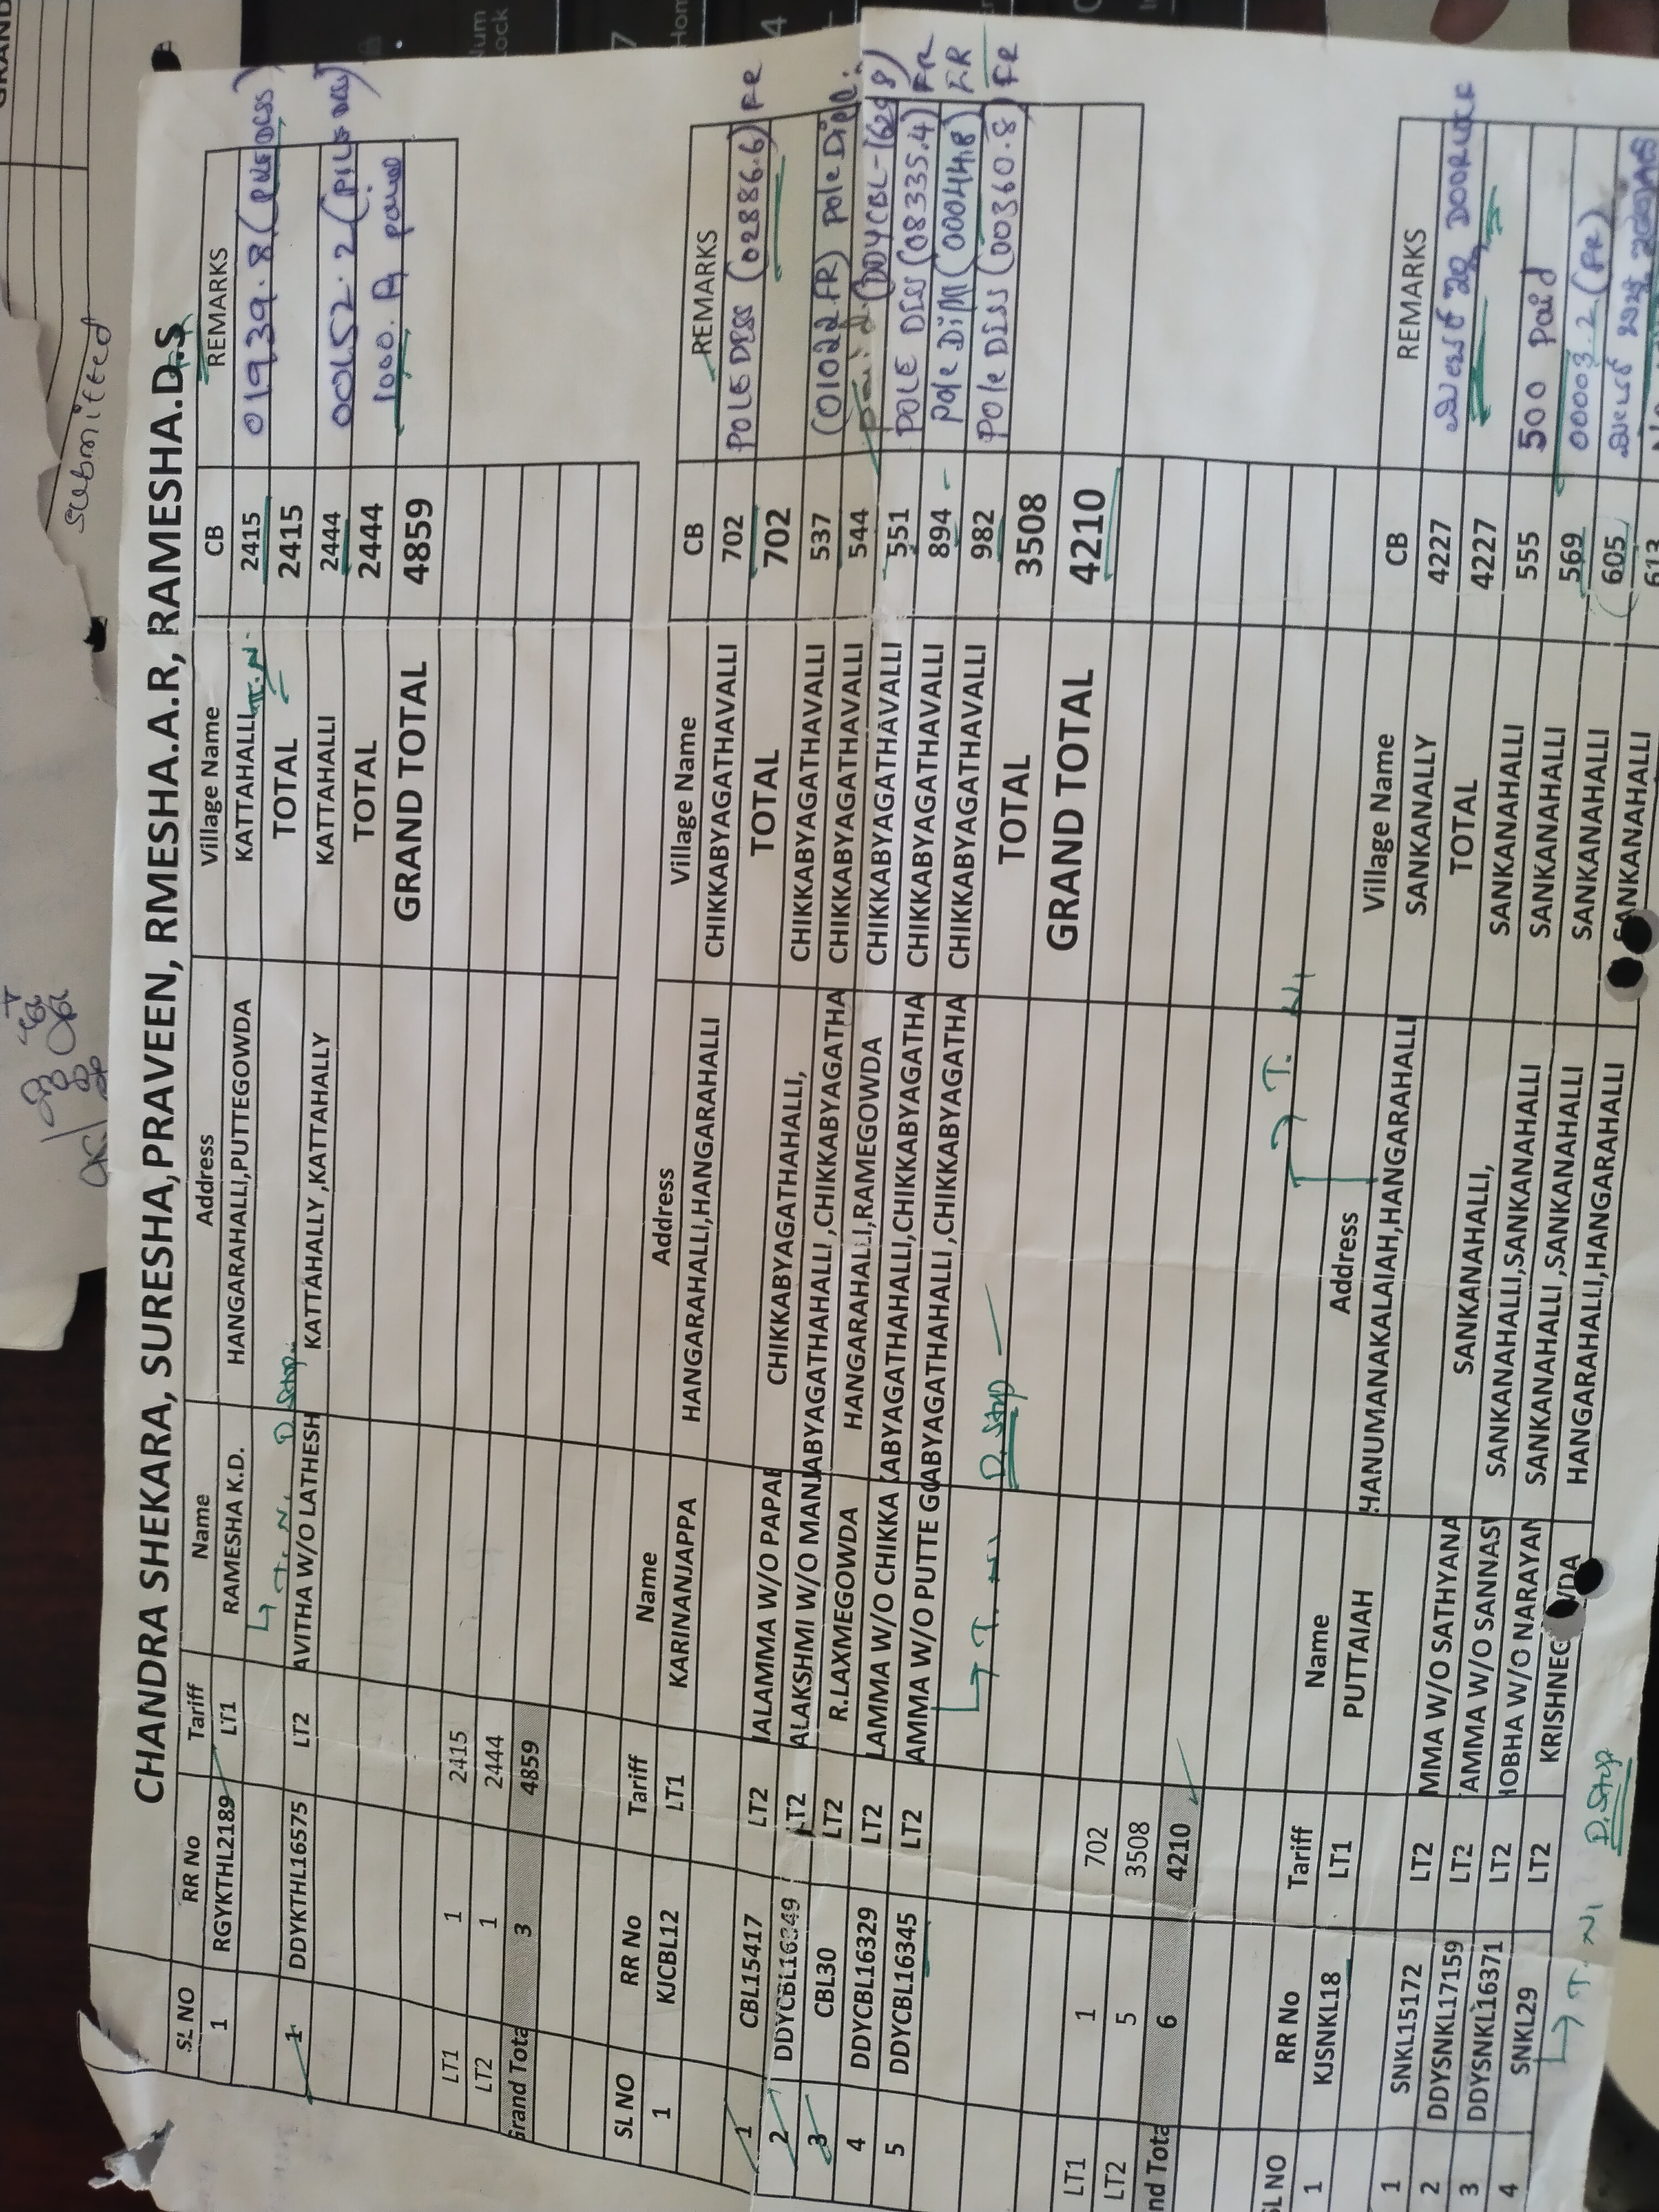 submitted
CHANDRA SHEKARA, SURESHA,PRAVEEN, RMESHA.A.R, RAMESHA.D.S
SL NO RR No Tariff Name Address Village Name CB REMARKS
1 RGYKTHL2189 LT1 RAMESHA K.D. HANGARAHALLI,PUTTEGOWDA KATTAHALLI 2415 01939.8
T.N. TOTAL 2415
1 DDYKTHL16575 LT2 AVITHA W/O LATHESH KATTAHALLY ,KATTAHALLY KATTAHALLI 2444 00152.2
D. Stop TOTAL 2444 1000
GRAND TOTAL 4859
LT1 1 2415
LT2 1 2444
Grand Tota 3 4859
SL NO RR No Tariff Name Address Village Name CB REMARKS
1 KJCBL12 LT1 KARINANJAPPA HANGARAHALLI,HANGARAHALLI CHIKKABYAGATHAVALLI 702 POLE DISS (02886.6) FR
TOTAL 702
1 CBL15417 LT2 IALAMMA W/O PAPAE CHIKKABYAGATHAHALLI, CHIKKABYAGATHAVALLI 537 (01022 FR) Pole Dis
2 DDYCBL16349 LT2 ALAKSHMI W/O MANJ ABYAGATHAHALLI ,CHIKKABYAGATHA CHIKKABYAGATHAVALLI 544 paid
3 CBL30 LT2 R.LAXMEGOWDA HANGARAHALLI,RAMEGOWDA CHIKKABYAGATHAVALLI 551 POLE DISS (08335.4) FR
4 DDYCBL16329 LT2 LAMMA W/O CHIKKA KABYAGATHAHALLI,CHIKKABYAGATHA CHIKKABYAGATHAVALLI 894 Pole FR
5 DDYCBL16345 LT2 AMMA W/O PUTTE GO ABYAGATHAHALLI ,CHIKKABYAGATHA CHIKKABYAGATHAVALLI 982 Pole Diss (00360.8) FR
T. N. D. Stop TOTAL 3508
GRAND TOTAL 4210
LT1 1 702
LT2 5 3508
nd Tota 6 4210
T. N.
SL NO RR No Tariff Name Address Village Name CB REMARKS
1 KJSNKL18 LT1 PUTTAIAH HANUMANAKALAIAH,HANGARAHALLI SANKANALLY 4227 DOORLOCK
TOTAL 4227
1 SNKL15172 LT2 MMA W/O SATHYANA SANKANAHALLI, SANKANAHALLI 555 500 Paid
2 DDYSNKL17159 LT2 AMMA W/O SANNAS SANKANAHALLI,SANKANAHALLI SANKANAHALLI 569 00003.2 (FR)
3 DDYSNKL16371 LT2 HOBHA W/O NARAYAN SANKANAHALLI ,SANKANAHALLI SANKANAHALLI 605
4 SNKL29 LT2 HANGARAHALLI,HANGARAHALLI SANKANAHALLI 613
T. N. D. Stop